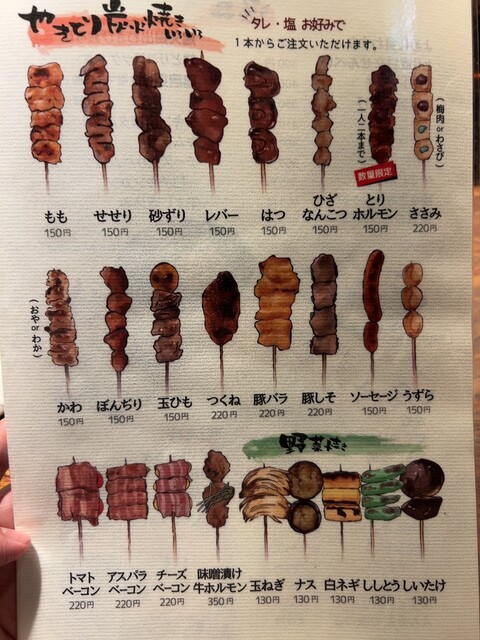 やきとり炭火焼きいろいろ
タレ・塩 お好みで
1本からご注文いただけます。
もも
150円
せせり
150円
砂ずり
150円
レバー
150円
はつ
150円
ひざ
なんこつ
150円
(一人二本まで)
数量限定
とり
ホルモン
150円
(梅肉orわさび)
ささみ
220円
(おやorわか)
かわ
150円
ぼんぢり
150円
玉ひも
150円
つくね
220円
豚バラ
220円
豚しそ
220円
ソーセージ
150円
うずら
150円
野菜焼き
トマト
ベーコン
220円
アスパラ
ベーコン
220円
チーズ
ベーコン
220円
味噌漬け
牛ホルモン
350円
玉ねぎ
130円
ナス
130円
白ネギ
130円
ししとう
130円
しいたけ
130円